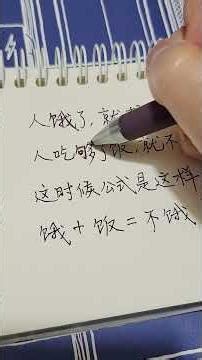 人饿了，就
人吃够了饭，就不
这时候公式是这样
饿+饭=不饿